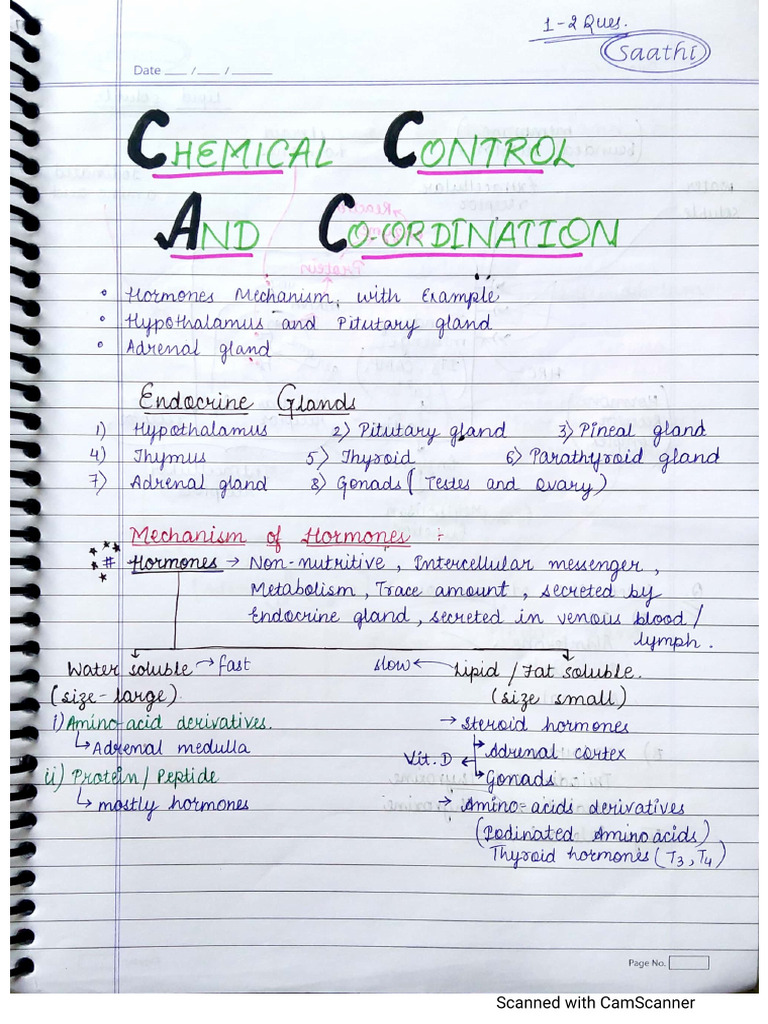 1-2 Ques.
Saathi
Date __ / __ / ____
CHEMICAL CONTROL
AND CO-ORDINATION
• Hormones Mechanism, with Example
• Hypothalamus and Pitutary gland
• Adrenal gland
Endocrine Glands
1) Hypothalamus 2) Pitutary gland 3) Pineal gland
4) Thymus 5) Thyroid 6) Parathyroid gland
7) Adrenal gland 8) Gonads (Testes and Ovary)
Mechanism of Hormones :
# Hormones → Non-nutritive, Intercellular messenger,
Metabolism, Trace amount, secreted by
Endocrine gland, secreted in venous blood/
lymph.
Water soluble → fast slow ← Lipid / Fat soluble.
(size-large) (size small)
i) Amino-acid derivatives. → Steroid hormones
↳ Adrenal medulla Vit. D ← ↳ Adrenal cortex
ii) Protein / Peptide ↳ Gonads
↳ mostly hormones → Amino-acids derivatives
(Iodinated Amino acids)
Thyroid hormones (T3, T4)
Page No.
Scanned with CamScanner